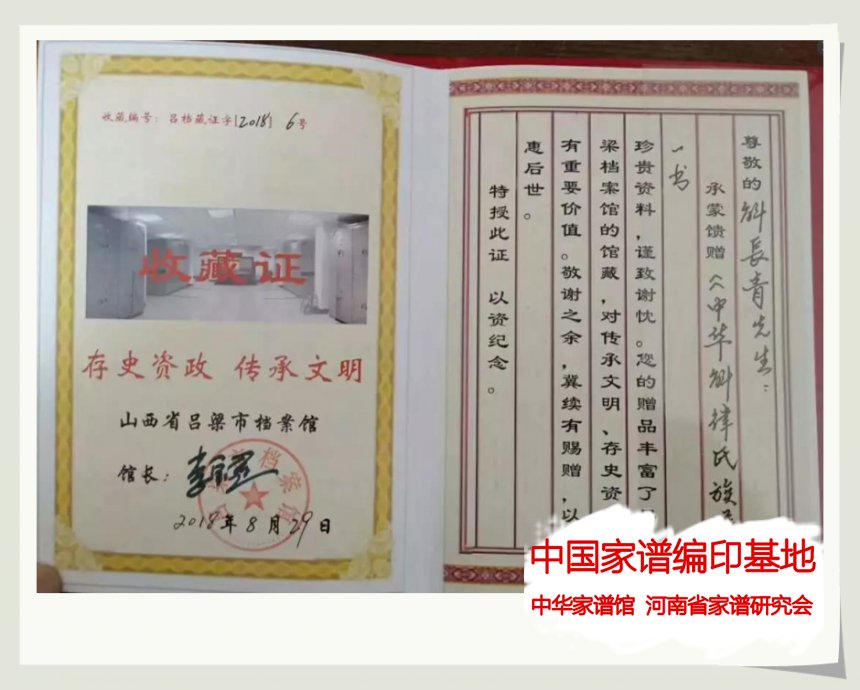 收藏编号：吕档藏证字[2018] 6号
收藏证
存史资政 传承文明
山西省吕梁市档案馆
馆长：
2018年8月29日
尊敬的斛長青先生：
承蒙馈赠《中华斛律氏族
一书
珍贵资料，谨致谢忱。您的赠品丰富了
梁档案馆的馆藏，对传承文明、存史资
有重要价值。敬谢之余，冀续有赐赠，以
惠后世。
特授此证 以资纪念。
中国家谱编印基地
中华家谱馆 河南省家谱研究会